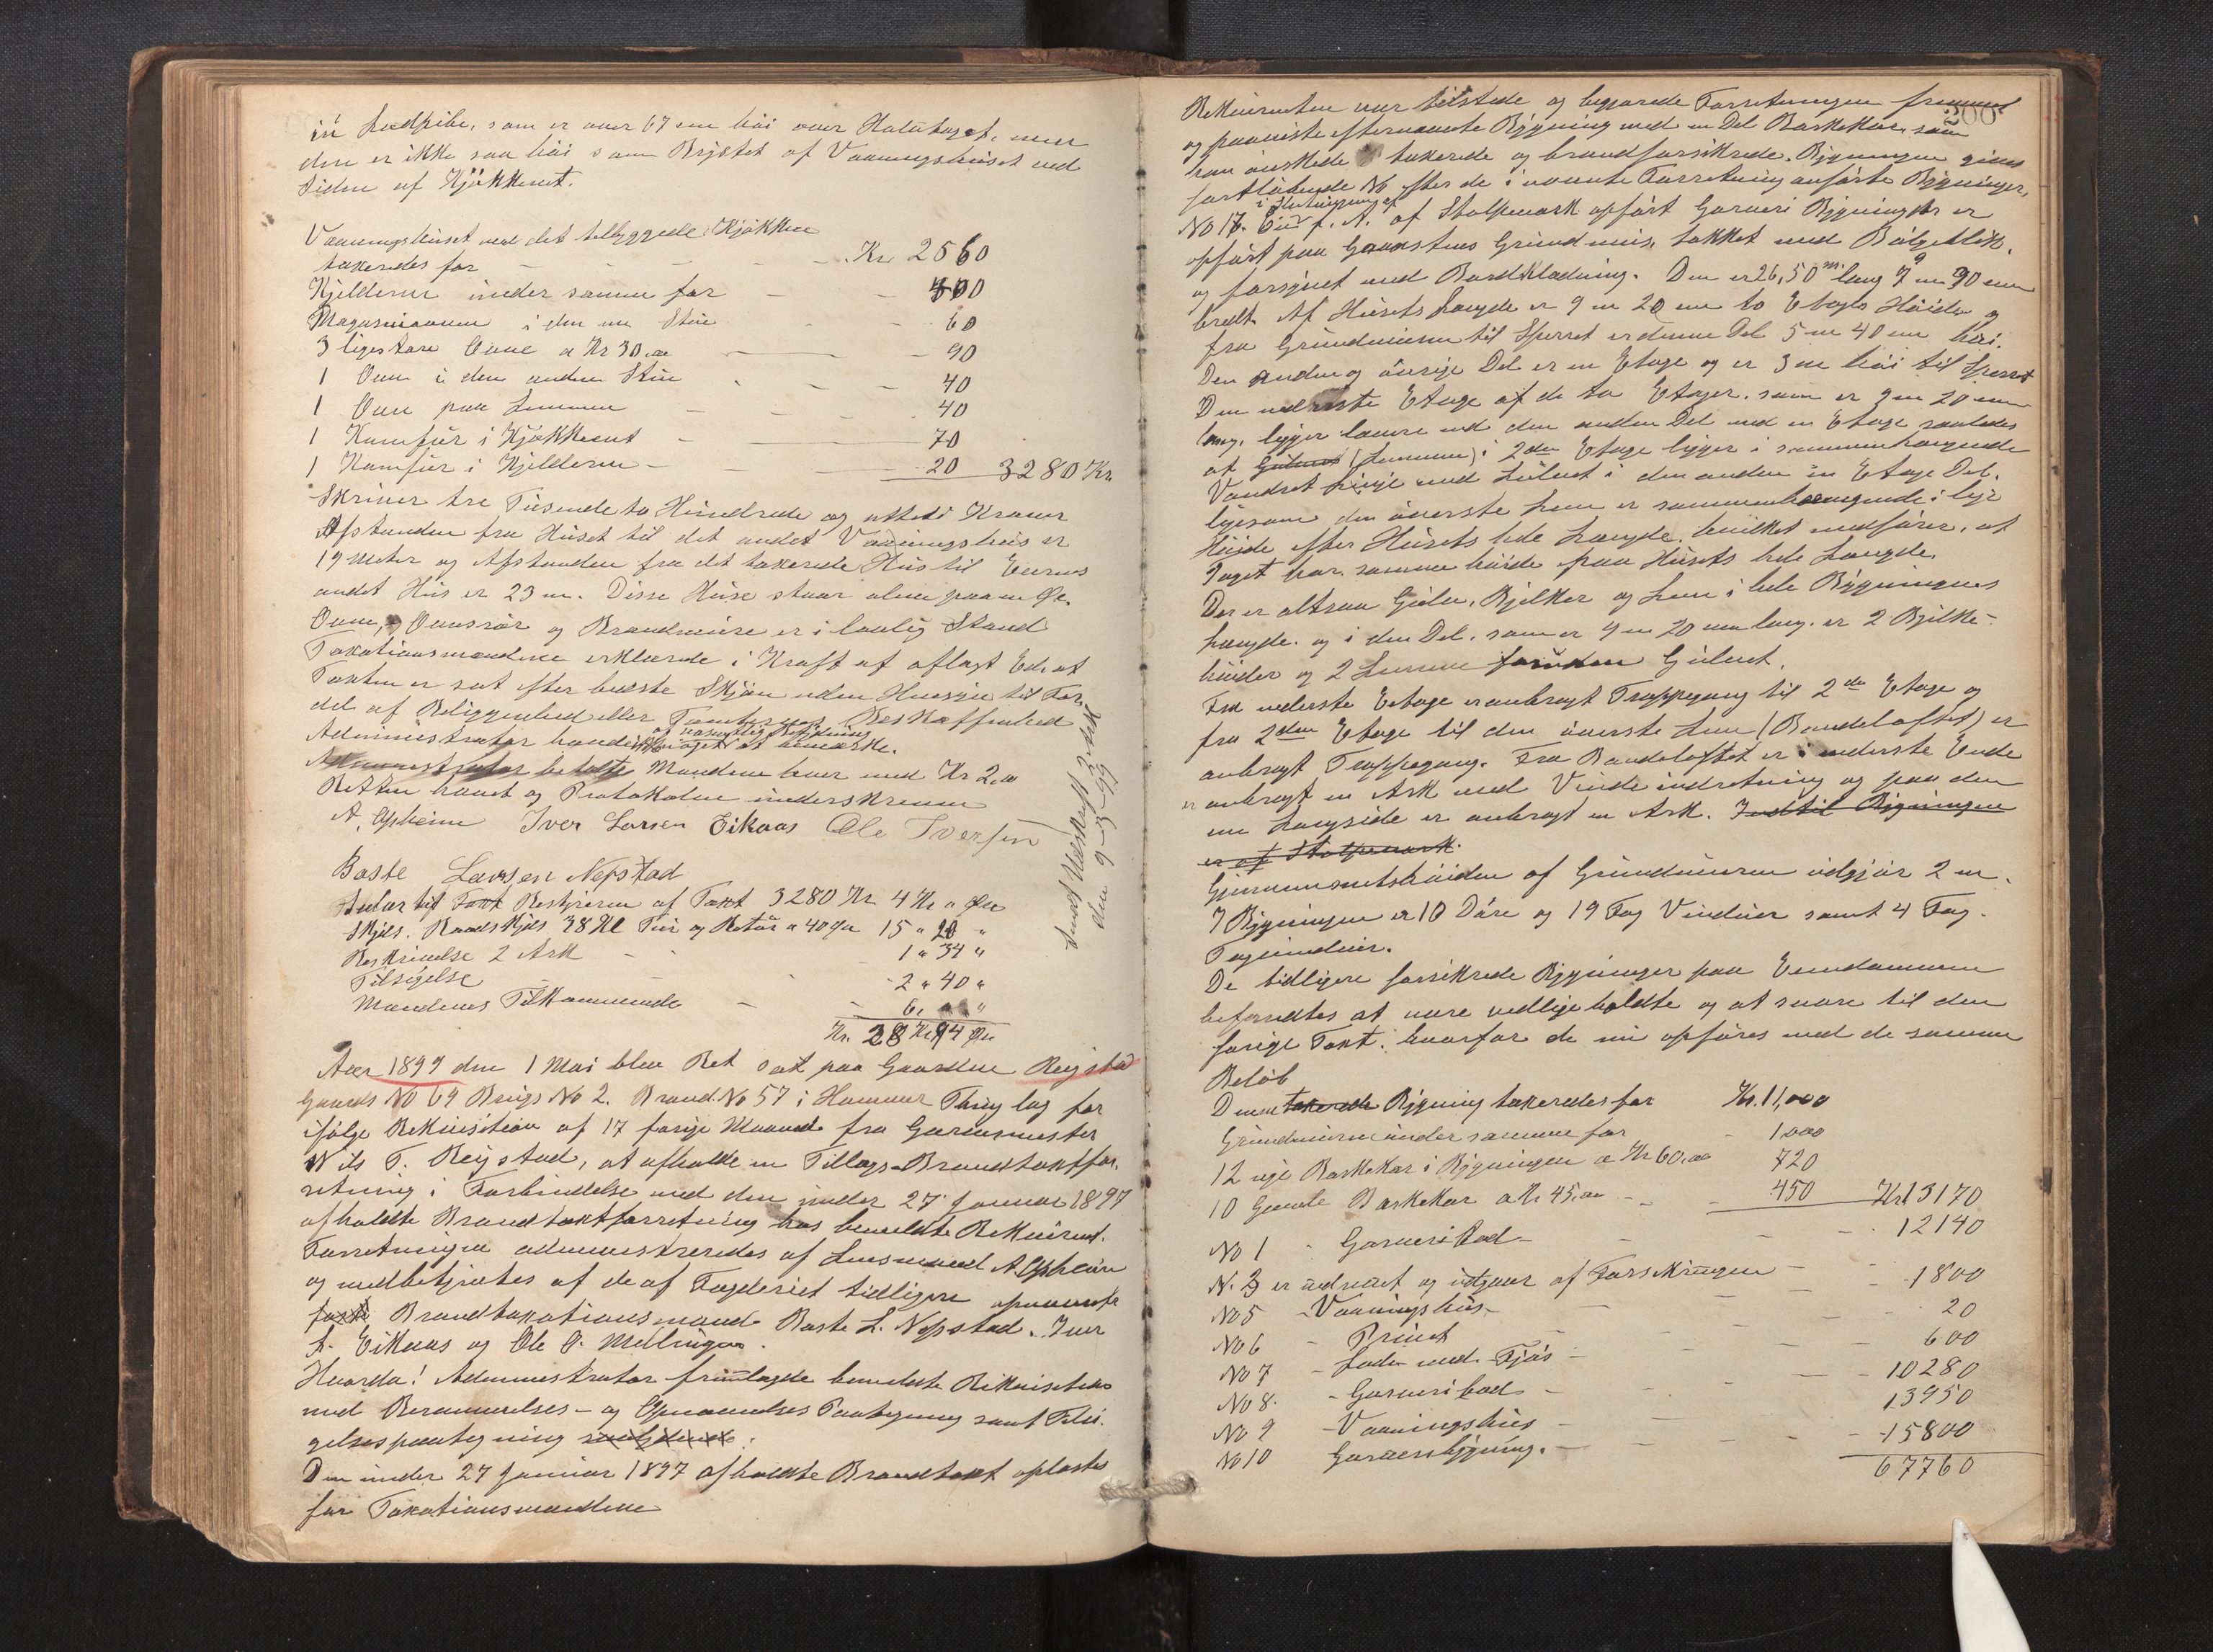 in Ludpibe, som er over 67 cm höi over Halvtaget, men
den er ikke saa höi som Brystet af Vaaningshuset ved
Siden af Kjökkenet.
Vaaningshuset med det tilbyggede Kjökken
taxeredes for - - - - Kr 2560
Kjelderen under samme for - - 400
Magasinovnen i den ene Stue - - 60
3 ligestore Ovne a Kr 30.00 - - 90
1 Ovn i den anden Stue - - - 40
1 Ovn paa Lemmen - - - 40
1 Komfur i Kjökkenet - - 70
1 Komfur i Kjelderen - - - 20 3280 Kr.
Skriver tre Tusende to Hundrede og ottedi Kroner
Afstanden fra Huset til det andet Vaaningshus er
19 Meter og Afstanden fra det taxerede Hus til Eiernes
andet Hus er 23 m. Disse Huse staar alene paa en Ø.
Ovne, Ovnsrör og Brandmure er i lovlig Stand
Taxationsmændene erklærede i Kraft af aflagt Ed, at
Taxten er sat efter bedste Skjön uden Hensyn til For-
del af Beliggenhed eller Tomternes Beskaffenhed
og navnlig Betydning
Administrator havde ikke noget at bemærke.
Administrator betalte Mændene hver med Kr 2.00
Retten hævet og Protokolen underskreven
A. Opheim Iver Larsen Eikaas Ole Iversen
Baste Larsen Nepstad
Salær til Bestyreren af Taxt 3280 Kr. 4 Kr " Øre
Skyds. Baadskyds 38 Kl Tur og Retur a 40 Øre 15 " 20 "
Beskrivelse 2 Ark - - 1 " 34 "
Tilsigelse - - 2 " 40 "
Mændenes Tilkommende - - 6 " "
Kr. 28 Kr 94 Øre
Sendt Udskrift
den 9-3-99
Aar 1899 den 1 Mai blev Ret sat paa Gaarden Reigstad
Gaards No 69 Brugs No 2. Brand.No 57 i Hammer Thinglag for
ifølge Rekvisition af 17 forige Maaned fra Garvermester
Nils T. Reigstad, at afholde en Tillægs-Brandtaxtfor-
retning i Forbindelse med den under 27 Januar 1897
afholdte Brandtaxtforretning hos bemeldte Rekvirent.
Forretningen administreredes af Lensmand A Opheim
og medbetjentes af de af Fogderiet tidligere opnævnte
faste Brandtaxationsmænd Baste L. Nepstad, Iver
L. Eikaas og Ole O. Mellingen.
Hvorda! Administrator fremlagde bemeldte Rekvisition
med Berammelses- og Opnævnelses Paategning samt Tilsi-
gelsespaategning
Den under 27 Januar 1897 afholdte Brandtaxt oplæstes
for Taxationsmændene
300
Rekvirenten var tilstede og begjærede Forretningen fremmet
og paaviste efternævnte Bygning med en Del Barkekar, som
han önskede taxerede og brandforsikrede. Bygningen gives
fortløbende No efter de i nævnte Forretning anførte Bygninger.
No 17. En af Stolpeværk opfört Garveri Bygning er
opfört paa Graastens Grundmur, tækket med Bölgeblik
og forsynet med Bordklædning. Den er 26,50 m. lang 7 m 90 cm
bredt. Af Husets Længde er 9 m 20 cm to Etages Höide og
fra Grundmuren til Sperret er denne Del 5 m 40 cm höi.
Den anden og övrige Del er en Etage og er 3 m höi til Sperret
Den nederste Etage af de to Etager, som er 9 m 20 cm
lang, ligger lavere end den anden Del med en Etage saaledes
at Gulvet (Lemmen) i 2den Etage ligger i sammenhængende
Vandret Linje med Gulvet i den anden en Etage Del.
ligesom den överste Lem er sammenhængende i lige
Höide efter Husets hele Længde, hvilket medförer, at
Taget har samme höide paa Husets hele Længde.
Der er altsaa Gulv, Bjelker og Lem i hele Bygningens
Længde, og i den Del, som er 9 m 20 cm lang, er 2 Bjelke-
höider og 2 Lemme foruden Gulvet.
Fra nederste Etage er anbragt Trappegang til 2de Etage og
fra 2den Etage til den överste Lem (Bandeloftet) er
anbragt Trappegang. Fra Bandeloftet er i nederste Ende
er anbragt en Ark med Vindeindretning og paa den
ene Langside er anbragt en Ark. Indtil Bygningen
er af Stolpeværk.
Gjennemsnitshöiden af Grundmuren udgjör 2 m.
I Bygningen er 10 Döre og 19 Fag Vinduer samt 4 Fag
Tagvinduer.
De tidligere forsikrede Bygninger paa Eiendommen
befandtes at være vedligeholdte og at svare til den
forige Taxt, hvorfor de nu opføres med de samme
Belöb
Denne taxerede Bygning taxeredes for Kr. 11,000
Grundmuren under samme for - 1000
12 nye Barkekar i Bygningen a Kr 60.00 720
10 Gamle Barkekar a Kr 45.00 - - 450 Kr 13170
No 1 - Garveribod - - - 12140
No 3 er nedrevet og udgaar af Forsikringen - -
No 5 - Vaaningshus - - - 1800
No 6 - Privet - - - 20
No 7 - Lade med Fjös - - - 600
No 8. - Garveribod - - - 10280
No 9 - Vaaningshus - - - 13950
No 10 Garveribygning. - - - 15800
67760